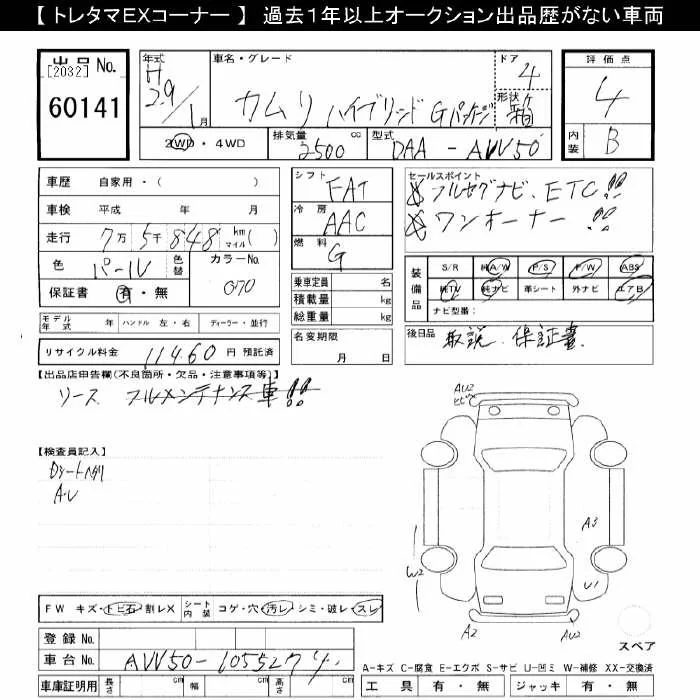 【 トレタマEXコーナー 】 過去1年以上オークション出品歴がない車両
出品 No. [2032] 60141
年式 H29/1月
車名・グレード カムリ ハイブリッド Gパッケージ
ドア 4
形状 箱
評価点 4
内装 B
2WD・4WD
排気量 2500 cc
型式 DAA-AVV50
車歴 自家用・( )
車検 平成 年 月
走行 7万5千848 km マイル ( )
色 パール 色替 カラーNo. 070
保証書 有・無
シフト FAT
冷房 AAC
燃料 G
乗車定員 名
積載量 kg
総重量 kg
セールスポイント
フルセグナビ、ETC!!
ワンオーナー!!
装備品
S/R 純A/W P/S P/W ABS
純TV 純ナビ 革シート 外ナビ エアB
ナビ型番:
モデル年式 年 ハンドル 左・右 ディーラー・並行
名変期限 月 日
後日品 取説、保証書
リサイクル料金 11460 円 預託済
【出品店申告欄(不良箇所・欠品・注意事項等)】
リース フルメンテナンス車!!
【検査員記入】
Dシートヘタリ
AU2
ヒビX
A3
W2
U1
A2
AU2
スペア
FW キズ・トビ石・割レX
シート内装 コゲ・穴・汚レ・シミ・破レ・スレ
登録 No.
車台 No. AVV50-1055274
車庫証明用 長さ cm 幅 cm 高さ cm
A-キズ C-腐食 E-エクボ S-サビ U-凹ミ W-補修 XX-交換済
工具 有・無 ジャッキ 有・無